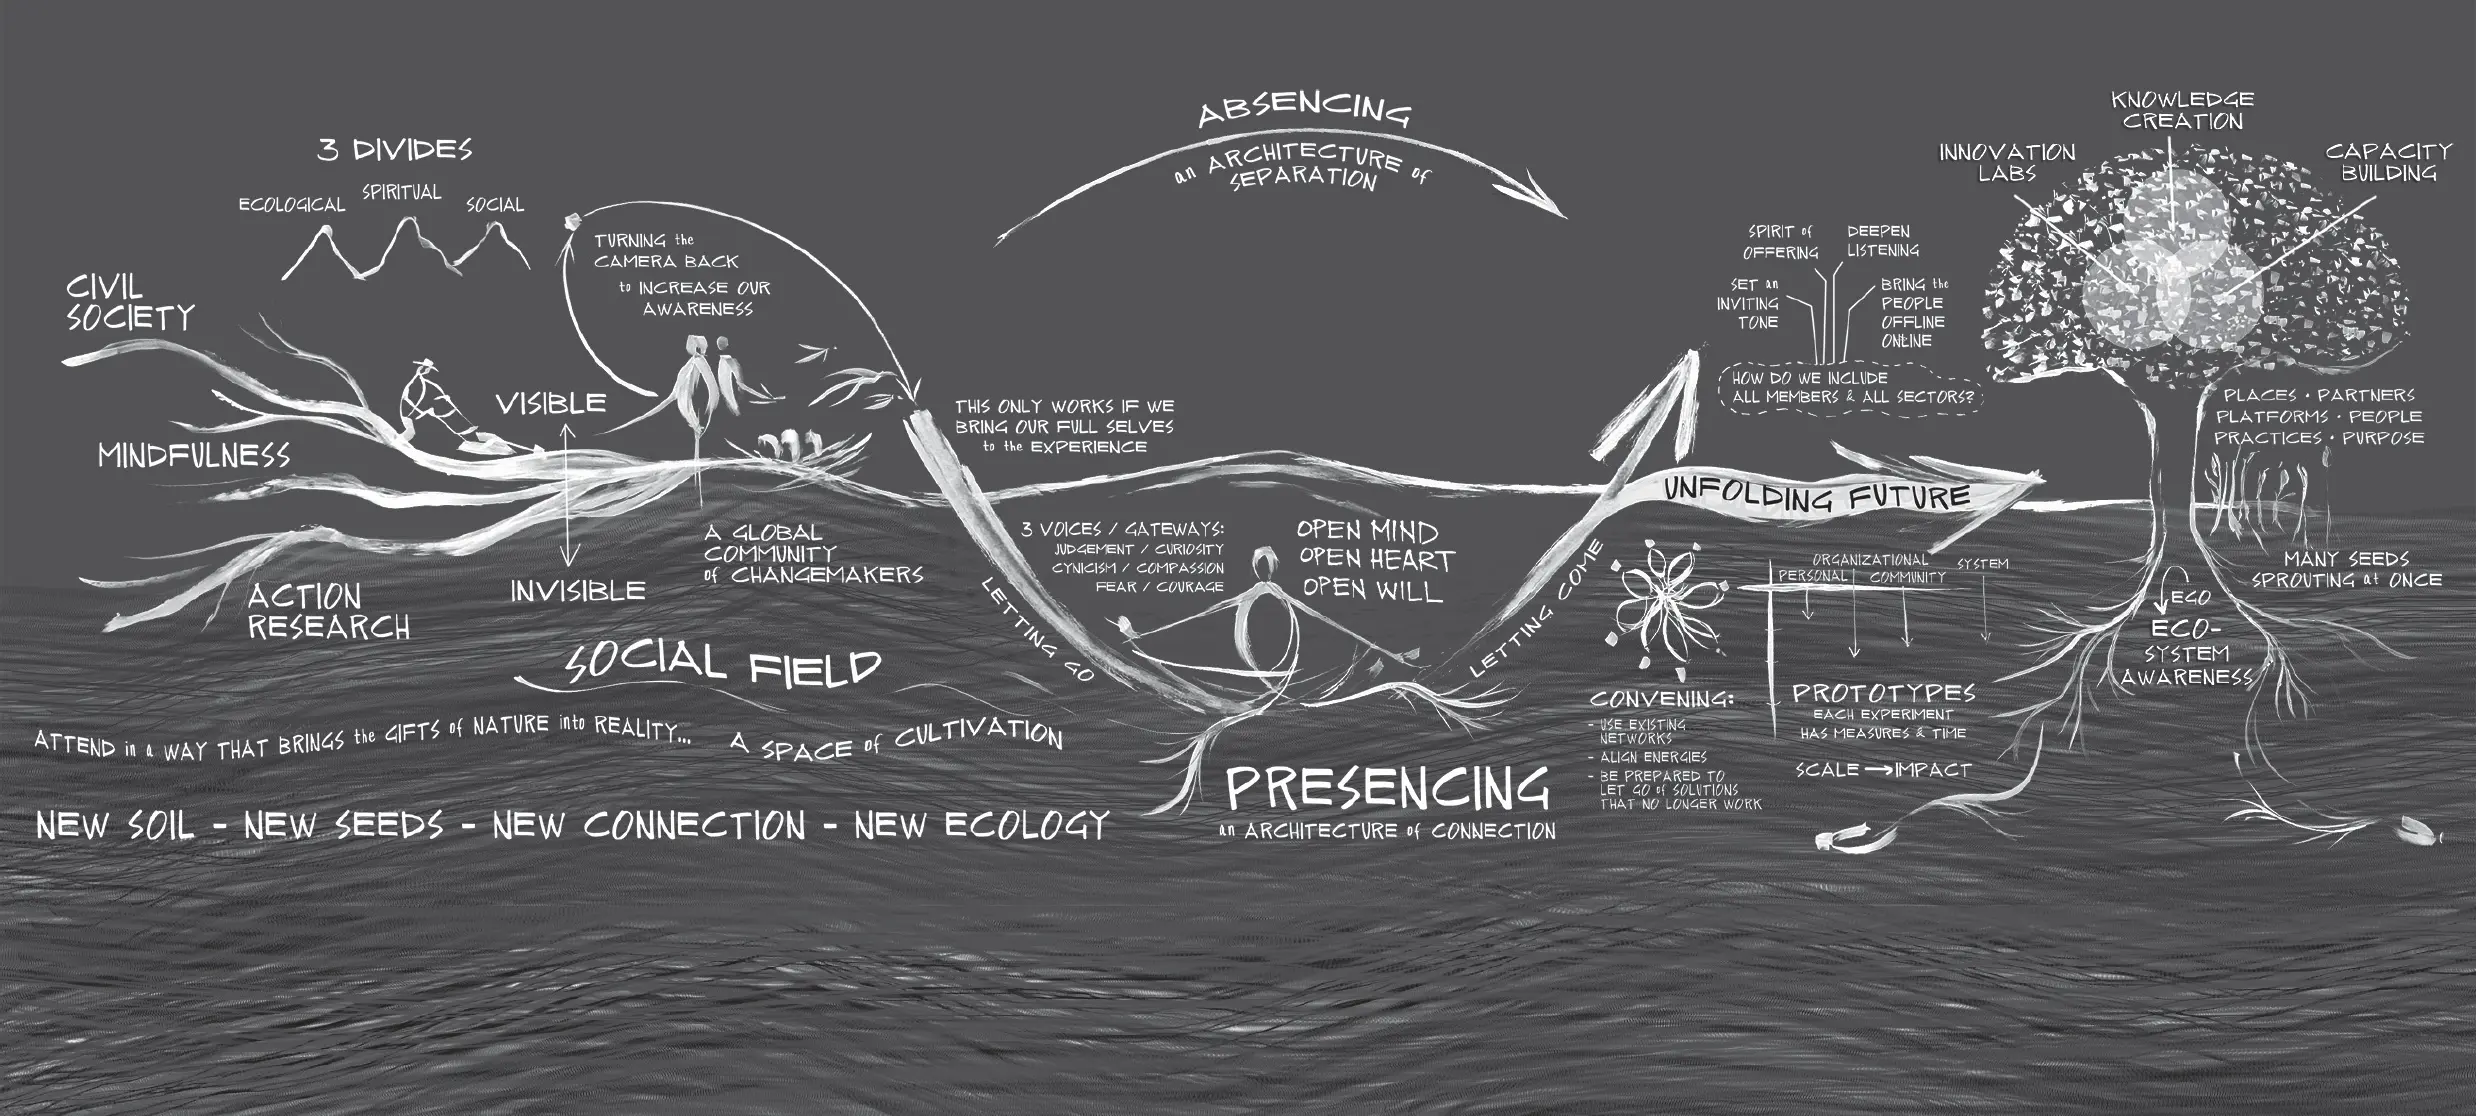 3 DIVIDES
ECOLOGICAL
SPIRITUAL
SOCIAL
CIVIL
SOCIETY
MINDFULNESS
ACTION
RESEARCH
VISIBLE
INVISIBLE
TURNING the
CAMERA BACK
to INCREASE OUR
AWARENESS
A GLOBAL
COMMUNITY
of CHANGEMAKERS
SOCIAL FIELD
ATTEND in a WAY THAT BRINGS the GIFTS of NATURE into REALITY...
A SPACE of CULTIVATION
NEW SOIL - NEW SEEDS - NEW CONNECTION - NEW ECOLOGY
ABSENCING
an ARCHITECTURE of
SEPARATION
THIS ONLY WORKS IF WE
BRING OUR FULL SELVES
to the EXPERIENCE
3 VOICES / GATEWAYS:
JUDGEMENT / CURIOSITY
CYNICISM / COMPASSION
FEAR / COURAGE
OPEN MIND
OPEN HEART
OPEN WILL
LETTING GO
LETTING COME
PRESENCING
an ARCHITECTURE of CONNECTION
SPIRIT of
OFFERING
DEEPEN
LISTENING
SET an
INVITING
TONE
BRING the
PEOPLE
OFFLINE
ONLINE
HOW DO WE INCLUDE
ALL MEMBERS & ALL SECTORS?
UNFOLDING FUTURE
CONVENING:
- USE EXISTING
NETWORKS
- ALIGN ENERGIES
- BE PREPARED TO
LET GO of SOLUTIONS
THAT NO LONGER WORK
PERSONAL
ORGANIZATIONAL
COMMUNITY
SYSTEM
PROTOTYPES
EACH EXPERIMENT
HAS MEASURES & TIME
SCALE → IMPACT
INNOVATION
LABS
KNOWLEDGE
CREATION
CAPACITY
BUILDING
PLACES • PARTNERS
PLATFORMS • PEOPLE
PRACTICES • PURPOSE
MANY SEEDS
SPROUTING at ONCE
EGO
ECO-
SYSTEM
AWARENESS